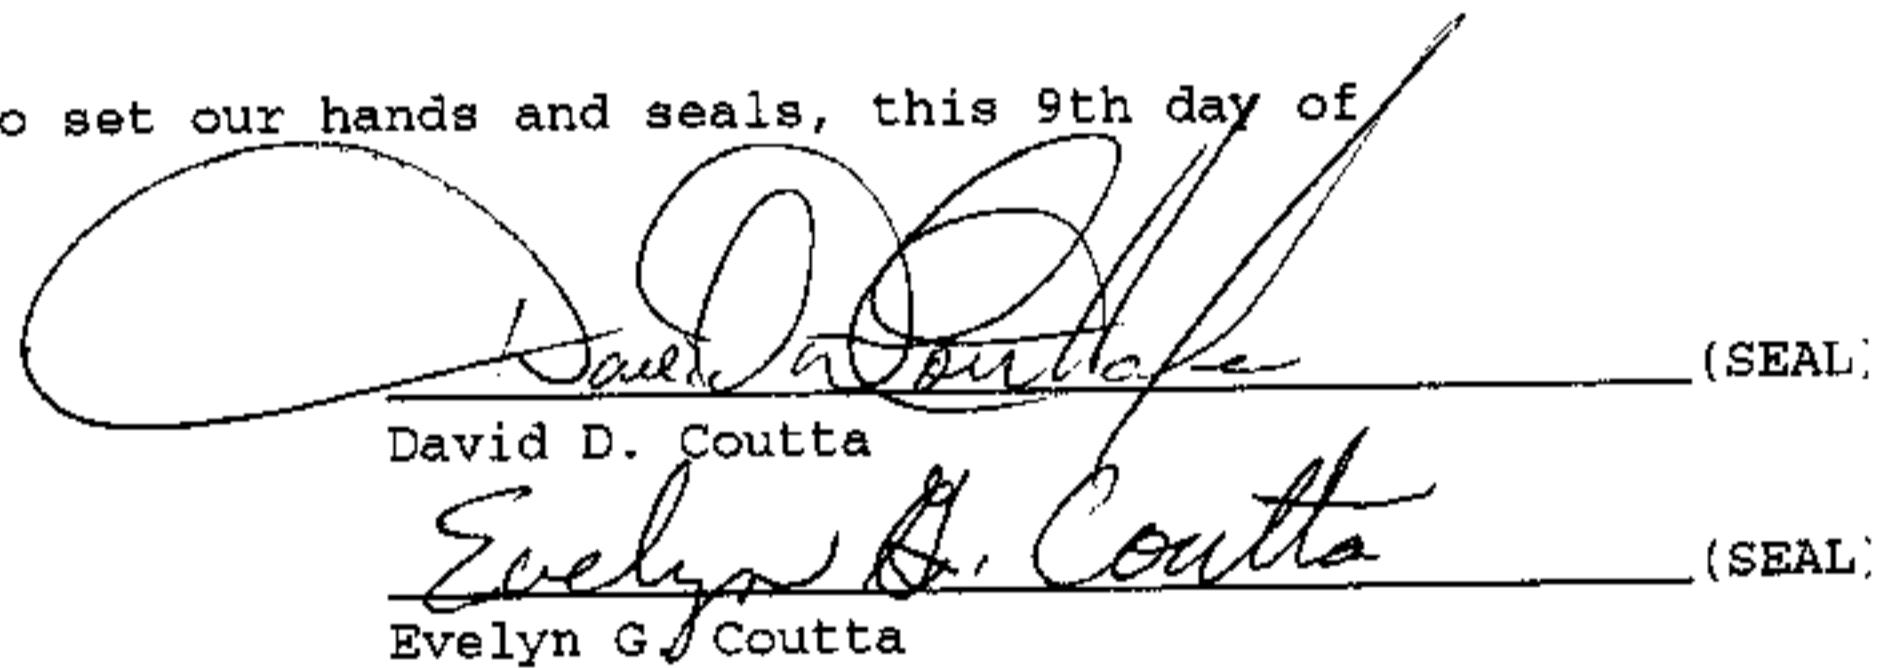 o set our hands and seals, this 9th day of
David D. Coutta (SEAL)
David D. Coutta
Evelyn G. Coutta (SEAL)
Evelyn G. Coutta